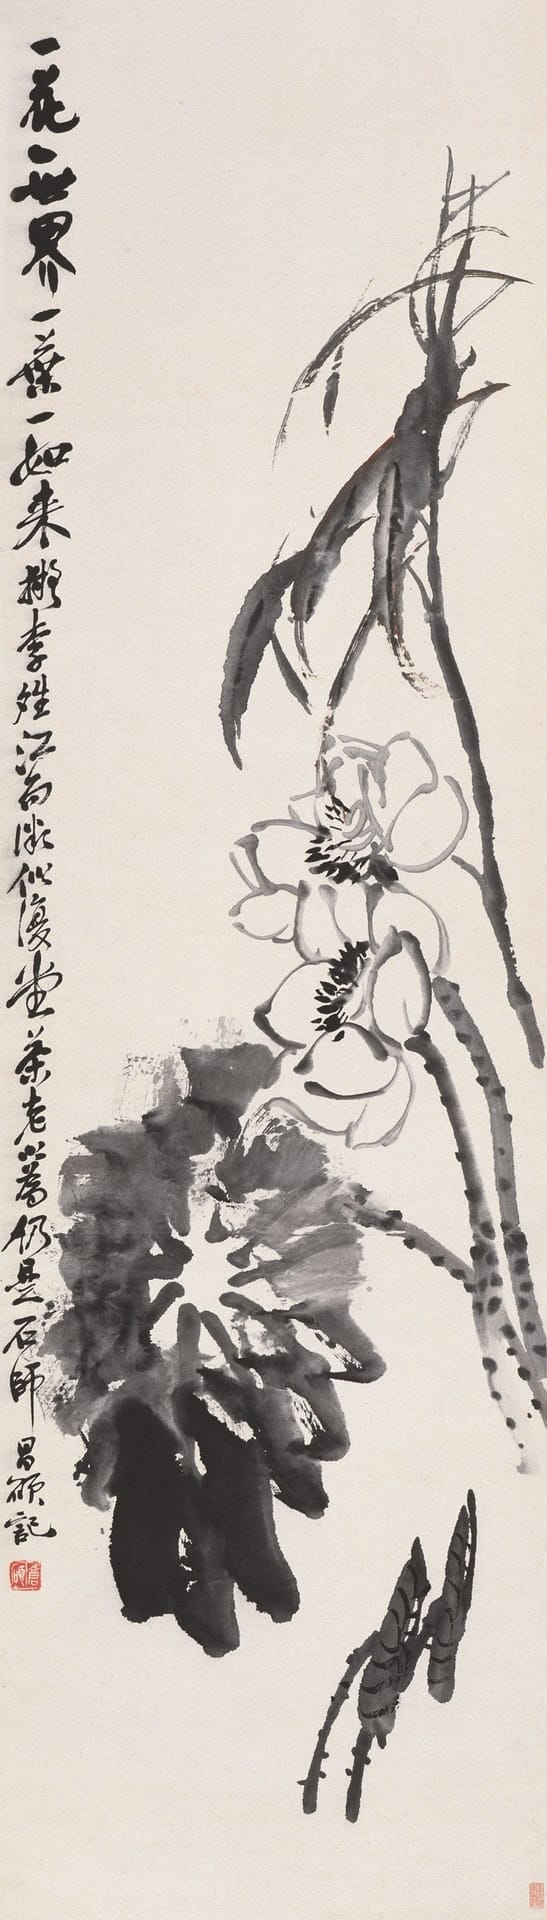 一花一世界一葉一如來擬李姓江南微似復堂茶老以為仍是石師昌碩記
倉碩